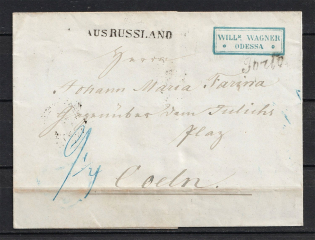 AUS RUSSLAND
WILLM. WAGNER
ODESSA
Herrn
Johann Maria Farina
Gegenüber dem Julichs
Plaz
Coeln.